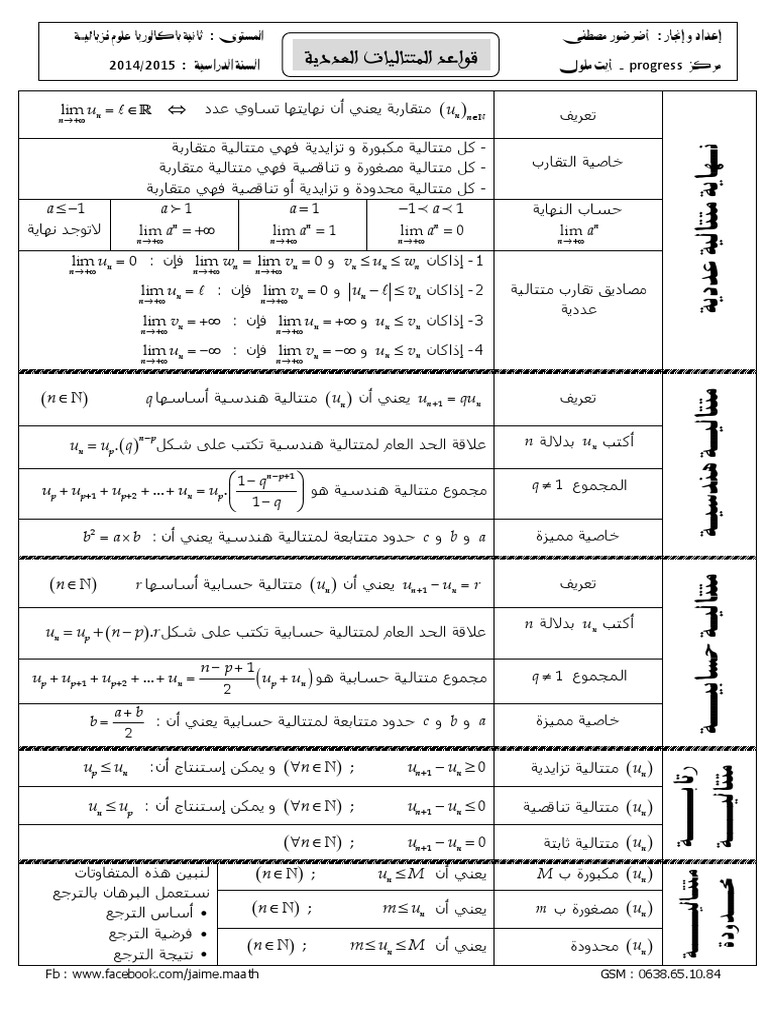 إعداد و إنجاز : أضرضور مصطفى
مركز progress - أيت ملول
قواعد المتتاليات العددية
المستوى : ثانية باكالوريا علوم فزيائية
السنة الدراسية : 2014/2015
نهاية متتالية عددية
تعريف
(uₙ)ₙ∈ℕ متقاربة يعني أن نهايتها تساوي عدد ⇔ lim uₙ = ℓ ∈ ℝ n→+∞
خاصية التقارب
- كل متتالية مكبورة و تزايدية فهي متتالية متقاربة
- كل متتالية مصغورة و تناقصية فهي متتالية متقاربة
- كل متتالية محدودة و تزايدية أو تناقصية فهي متقاربة
حساب النهاية
lim aⁿ n→+∞
−1 ≺ a ≺ 1
lim aⁿ = 0 n→+∞
a = 1
lim aⁿ = 1 n→+∞
a ≻ 1
lim aⁿ = +∞ n→+∞
a ≤ −1
لاتوجد نهاية
مصاديق تقارب متتالية
عددية
1- إذاكان vₙ ≤ uₙ ≤ wₙ و lim wₙ = lim vₙ = 0 n→+∞ n→+∞ فإن : lim uₙ = 0 n→+∞
2- إذاكان |uₙ − ℓ| ≤ vₙ و lim vₙ = 0 n→+∞ فإن : lim uₙ = ℓ n→+∞
3- إذاكان uₙ ≤ vₙ و lim uₙ = +∞ n→+∞ فإن : lim vₙ = +∞ n→+∞
4- إذاكان uₙ ≤ vₙ و lim vₙ = −∞ n→+∞ فإن : lim uₙ = −∞ n→+∞
متتالية هندسية
تعريف
uₙ₊₁ = quₙ يعني أن (uₙ) متتالية هندسية أساسها q (n ∈ ℕ)
أكتب uₙ بدلالة n
علاقة الحد العام لمتتالية هندسية تكتب على شكل uₙ = uₚ.(q)ⁿ⁻ᵖ
المجموع q ≠ 1
مجموع متتالية هندسية هو uₚ + uₚ₊₁ + uₚ₊₂ + ... + uₙ = uₚ.((1 − qⁿ⁻ᵖ⁺¹)/(1 − q))
خاصية مميزة
a و b و c حدود متتابعة لمتتالية هندسية يعني أن : b² = a × b
متتالية حسابية
تعريف
uₙ₊₁ − uₙ = r يعني أن (uₙ) متتالية حسابية أساسها r (n ∈ ℕ)
أكتب uₙ بدلالة n
علاقة الحد العام لمتتالية حسابية تكتب على شكل uₙ = uₚ + (n − p).r
المجموع q ≠ 1
مجموع متتالية حسابية هو uₚ + uₚ₊₁ + uₚ₊₂ + ... + uₙ = (n − p + 1)/2 (uₚ + uₙ)
خاصية مميزة
a و b و c حدود متتابعة لمتتالية حسابية يعني أن : b = (a + b)/2
متتالية
رتابة
(uₙ) متتالية تزايدية
uₙ₊₁ − uₙ ≥ 0 ; (∀n ∈ ℕ) و يمكن إستنتاج أن: uₚ ≤ uₙ
(uₙ) متتالية تناقصية
uₙ₊₁ − uₙ ≤ 0 ; (∀n ∈ ℕ) و يمكن إستنتاج أن : uₙ ≤ uₚ
(uₙ) متتالية ثابتة
uₙ₊₁ − uₙ = 0 ; (∀n ∈ ℕ)
متتالية
محدودة
(uₙ) مكبورة ب M
يعني أن uₙ ≤ M ; (n ∈ ℕ)
(uₙ) مصغورة ب m
يعني أن m ≤ uₙ ; (n ∈ ℕ)
(uₙ) محدودة
يعني أن m ≤ uₙ ≤ M ; (n ∈ ℕ)
لنبين هذه المتفاوتات
نستعمل البرهان بالترجع
• أساس الترجع
• فرضية الترجع
• نتيجة الترجع
Fb : www.facebook.com/jaime.maath
GSM : 0638.65.10.84